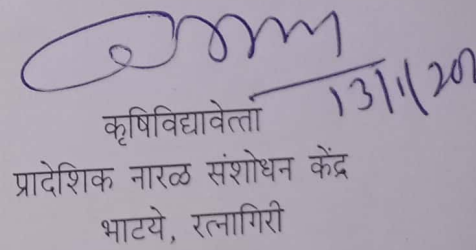 13/1/20
कृषिविद्यावेत्ता
प्रादेशिक नारळ संशोधन केंद्र
भाट्ये, रत्नागिरी